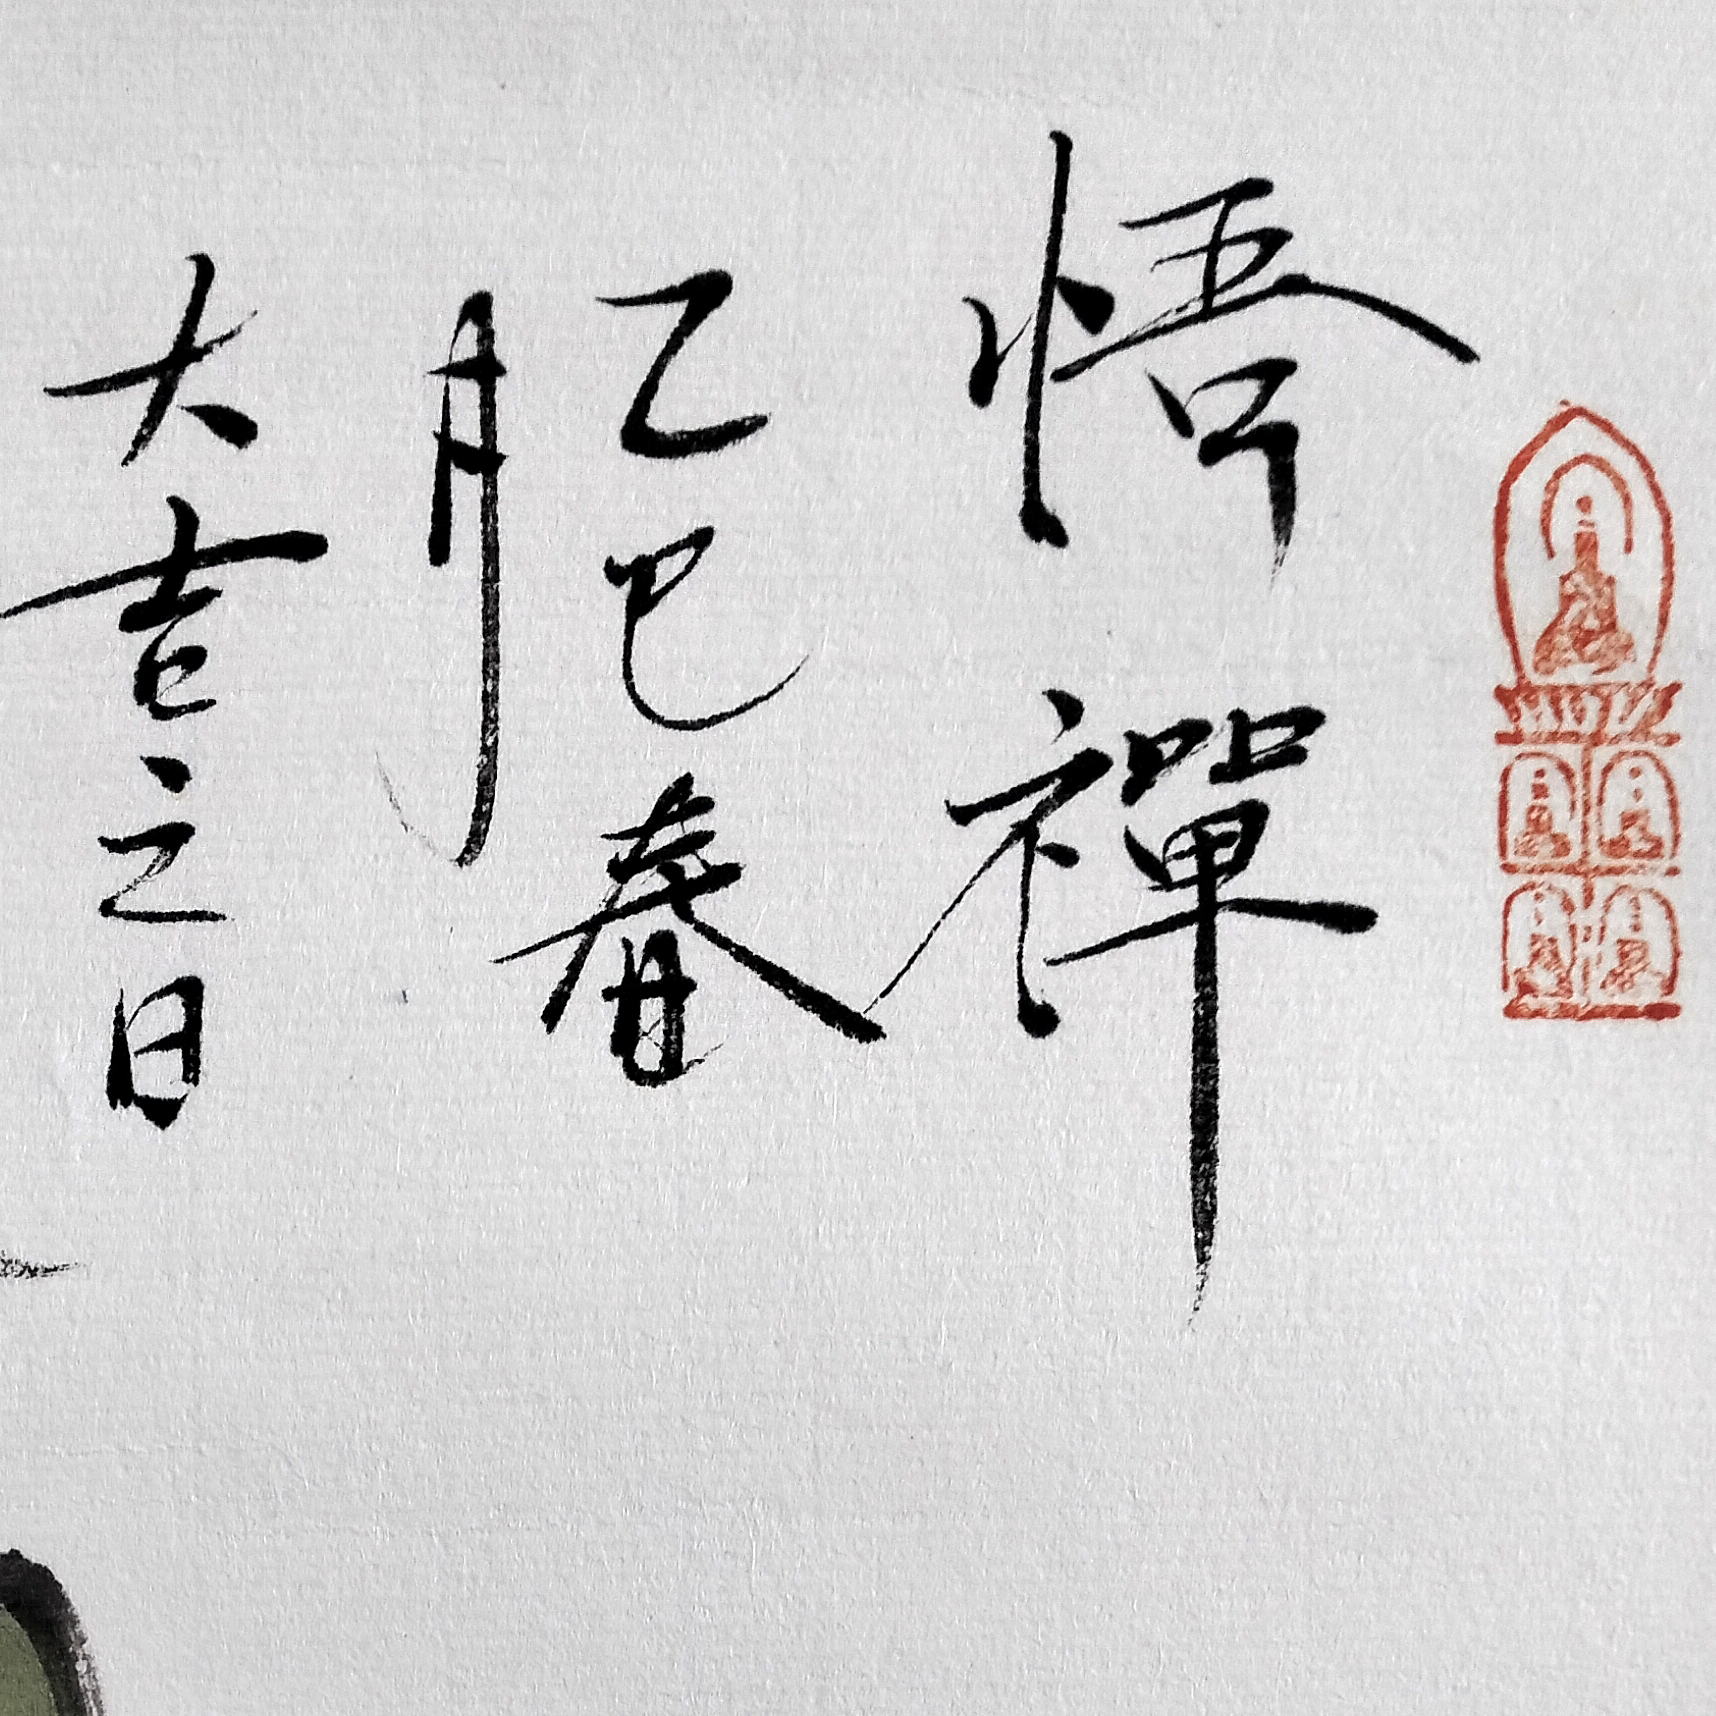 悟禪
乙巳春
月
大吉之日